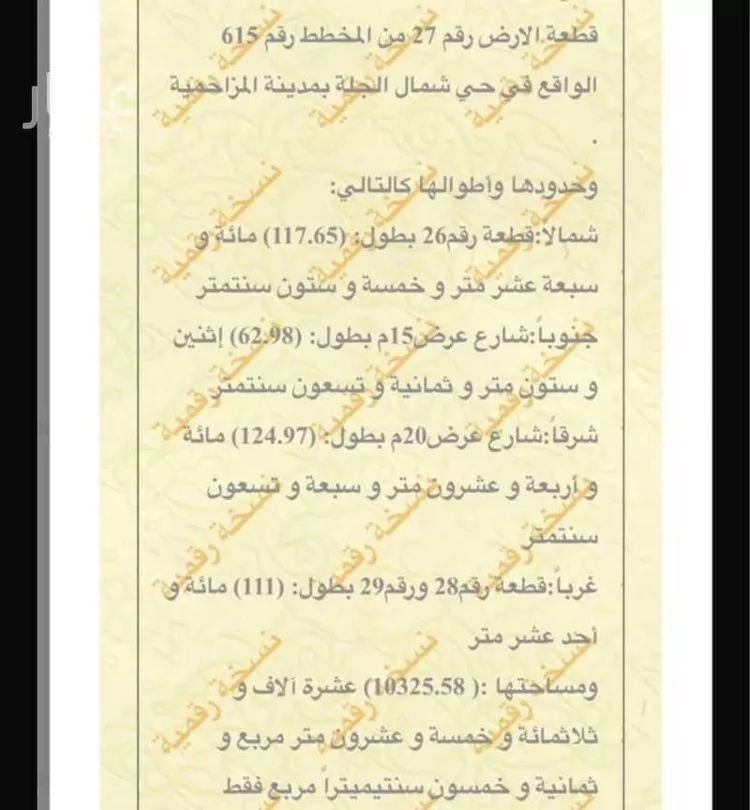 قطعة الارض رقم 27 من المخطط رقم 615
الواقع في حي شمال الجلة بمدينة المزاحمية
.
وحدودها وأطوالها كالتالي:
شمالا:قطعة رقم26 بطول: (117.65) مائة و
سبعة عشر متر و خمسة و ستون سنتمتر
جنوباً:شارع عرض15م بطول: (62.98) إثنين
و ستون متر و ثمانية و تسعون سنتمتر
شرقاً:شارع عرض20م بطول: (124.97) مائة
و أربعة و عشرون متر و سبعة و تسعون
سنتمتر
غرباً:قطعة رقم28 ورقم29 بطول: (111) مائة و
أحد عشر متر
ومساحتها :( 10325.58) عشرة آلاف و
ثلاثمائة و خمسة و عشرون متر مربع و
ثمانية و خمسون سنتيميتراً مربع فقط
نسخة رقمية